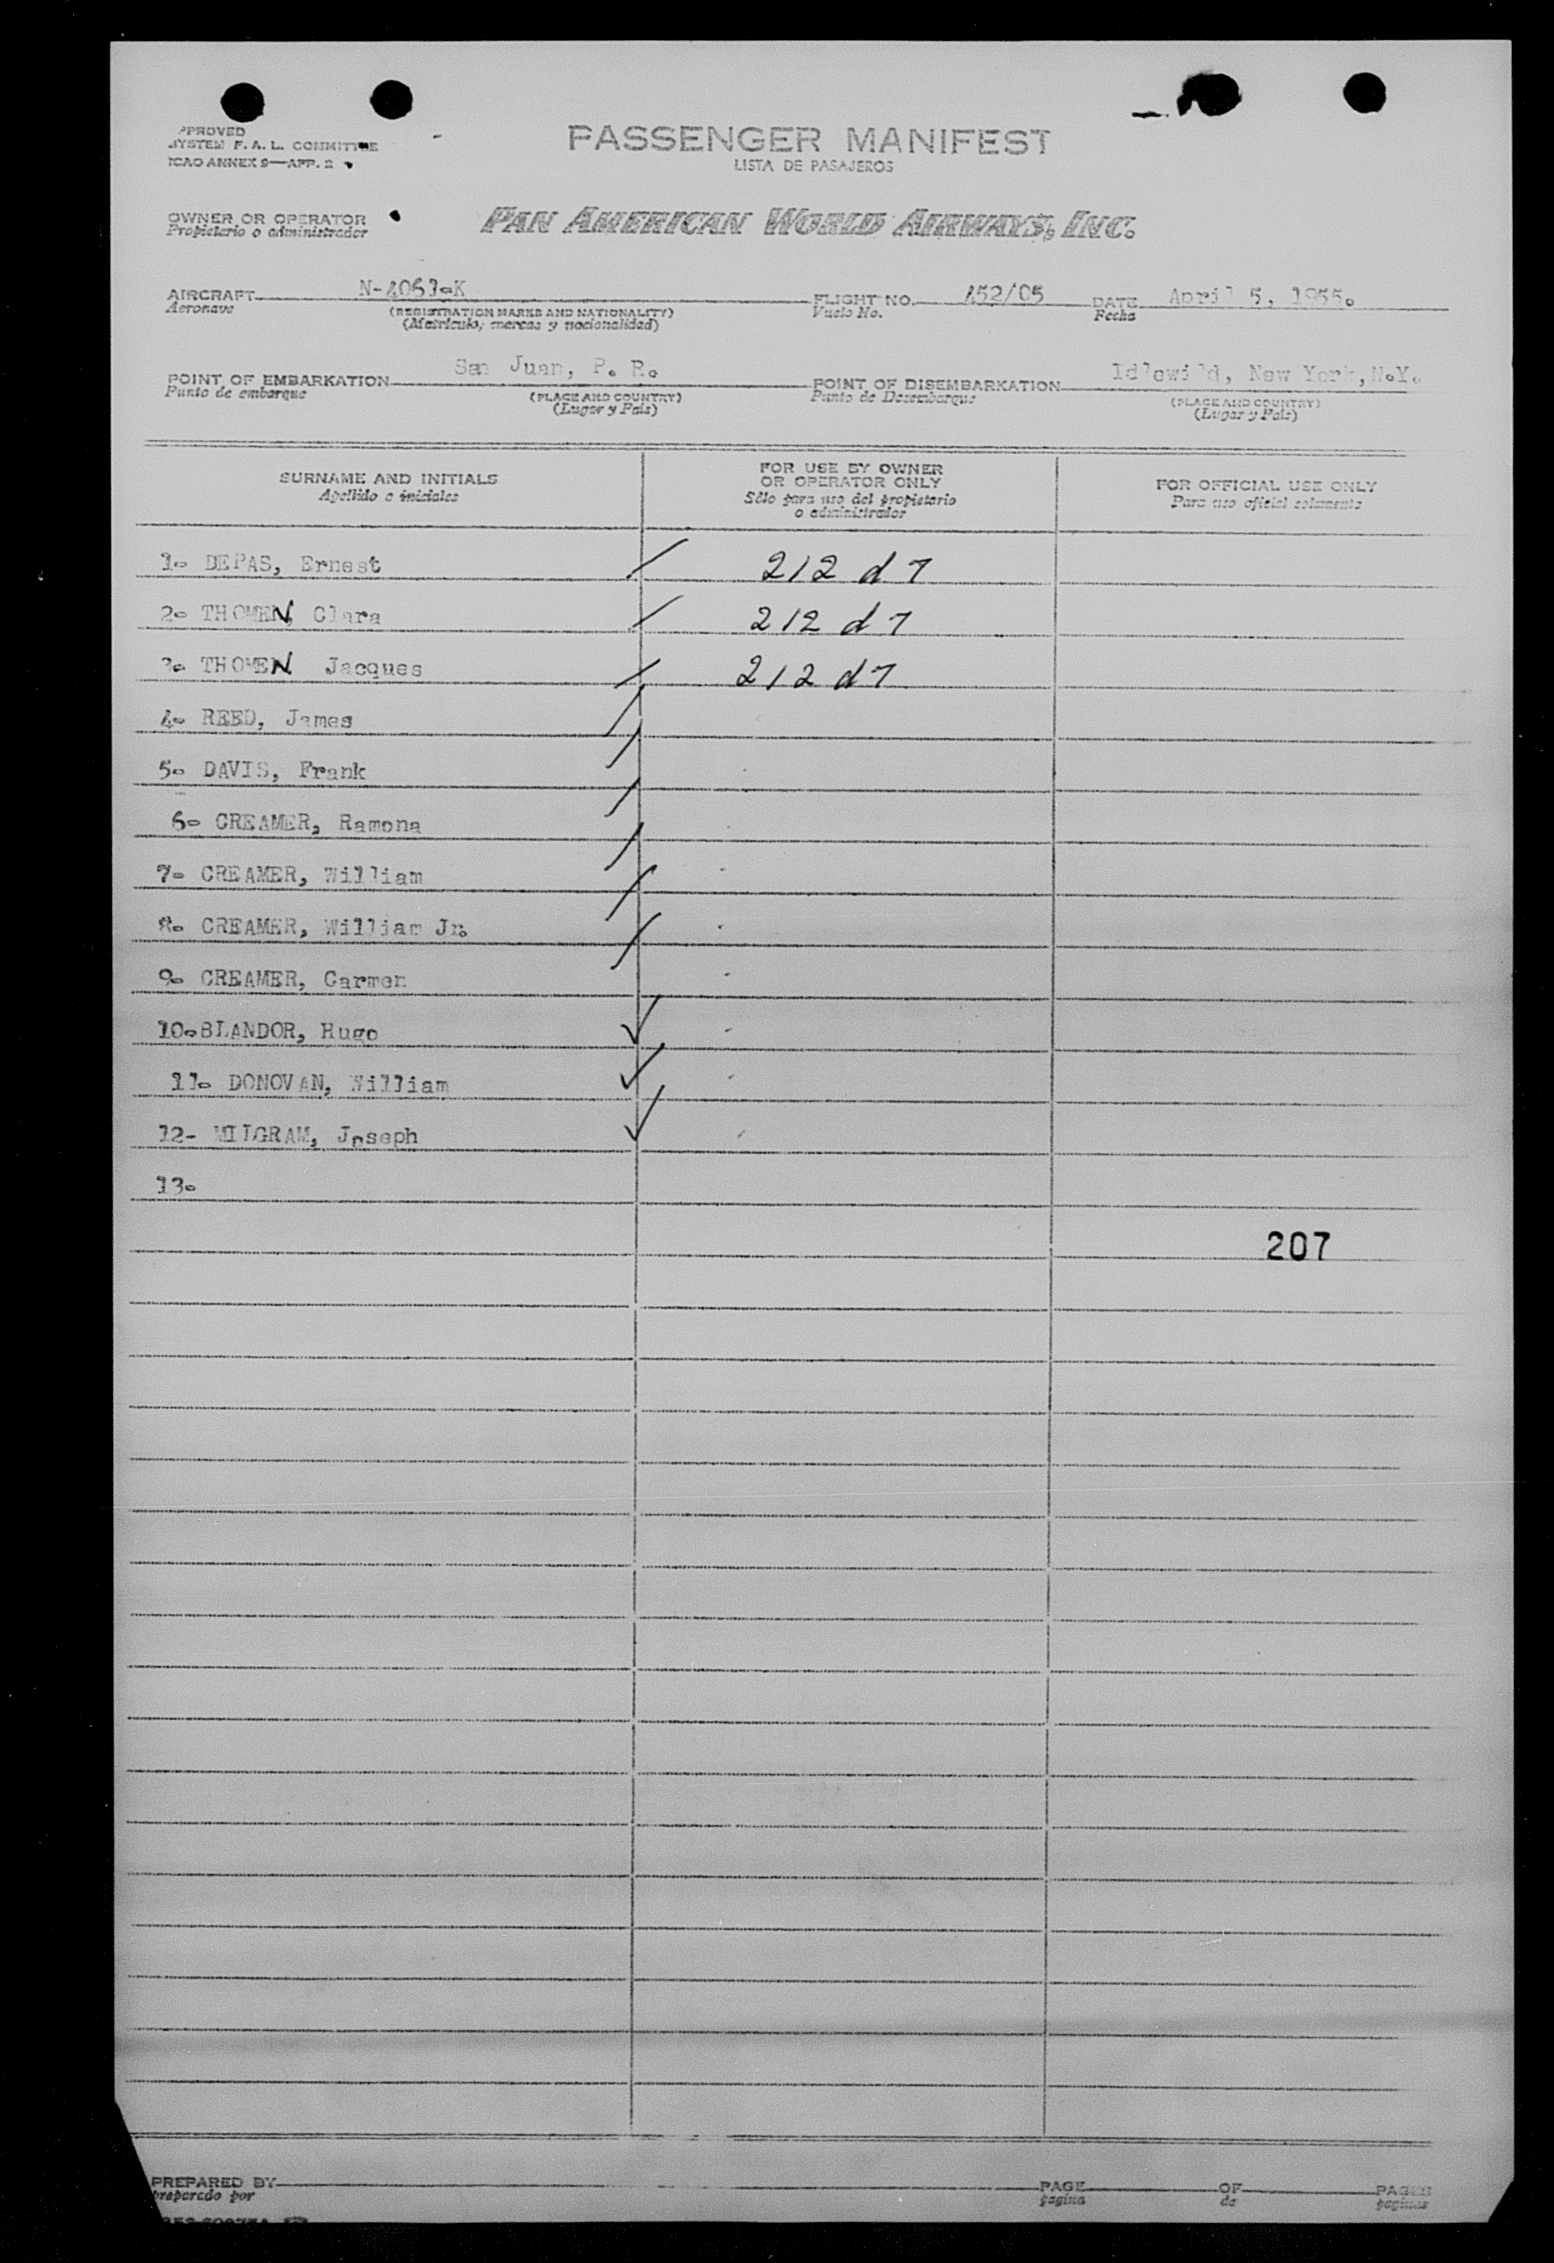 APPROVED
SYSTEM F. A. L. COMMITTEE
ICAO ANNEX 9—APP. 2
PASSENGER MANIFEST
LISTA DE PASAJEROS
OWNER OR OPERATOR
Propietario o administrador
PAN AMERICAN WORLD AIRWAYS, INC.
AIRCRAFT N-4063-K
Aeronave
(REGISTRATION MARKS AND NATIONALITY)
(Matrícula, marcas y nacionalidad)
FLIGHT NO. 452/05
Vuelo No.
DATE April 5, 1955.
Fecha
POINT OF EMBARKATION San Juan, P. R.
Punto de embarque
(PLACE AND COUNTRY)
(Lugar y País)
POINT OF DISEMBARKATION Idlewild, New York, N.Y.
Punto de Desembarque
(PLACE AND COUNTRY)
(Lugar y País)
SURNAME AND INITIALS
Apellido e iniciales
FOR USE BY OWNER
OR OPERATOR ONLY
Sólo para uso del propietario
o administrador
FOR OFFICIAL USE ONLY
Para uso oficial solamente
1- DEPAS, Ernest 212 d 7
2- THOMEN, Clara 212 d 7
3- THOMEN Jacques 212 d 7
4- REED, James
5- DAVIS, Frank
6- CREAMER, Ramona
7- CREAMER, William
8- CREAMER, William Jr.
9- CREAMER, Carmen
10-BLANDOR, Hugo
11- DONOVAN, William
12- MILGRAM, Joseph
13-
207
PREPARED BY
preparado por
PAGE
pagina
OF
de
PAGES
paginas